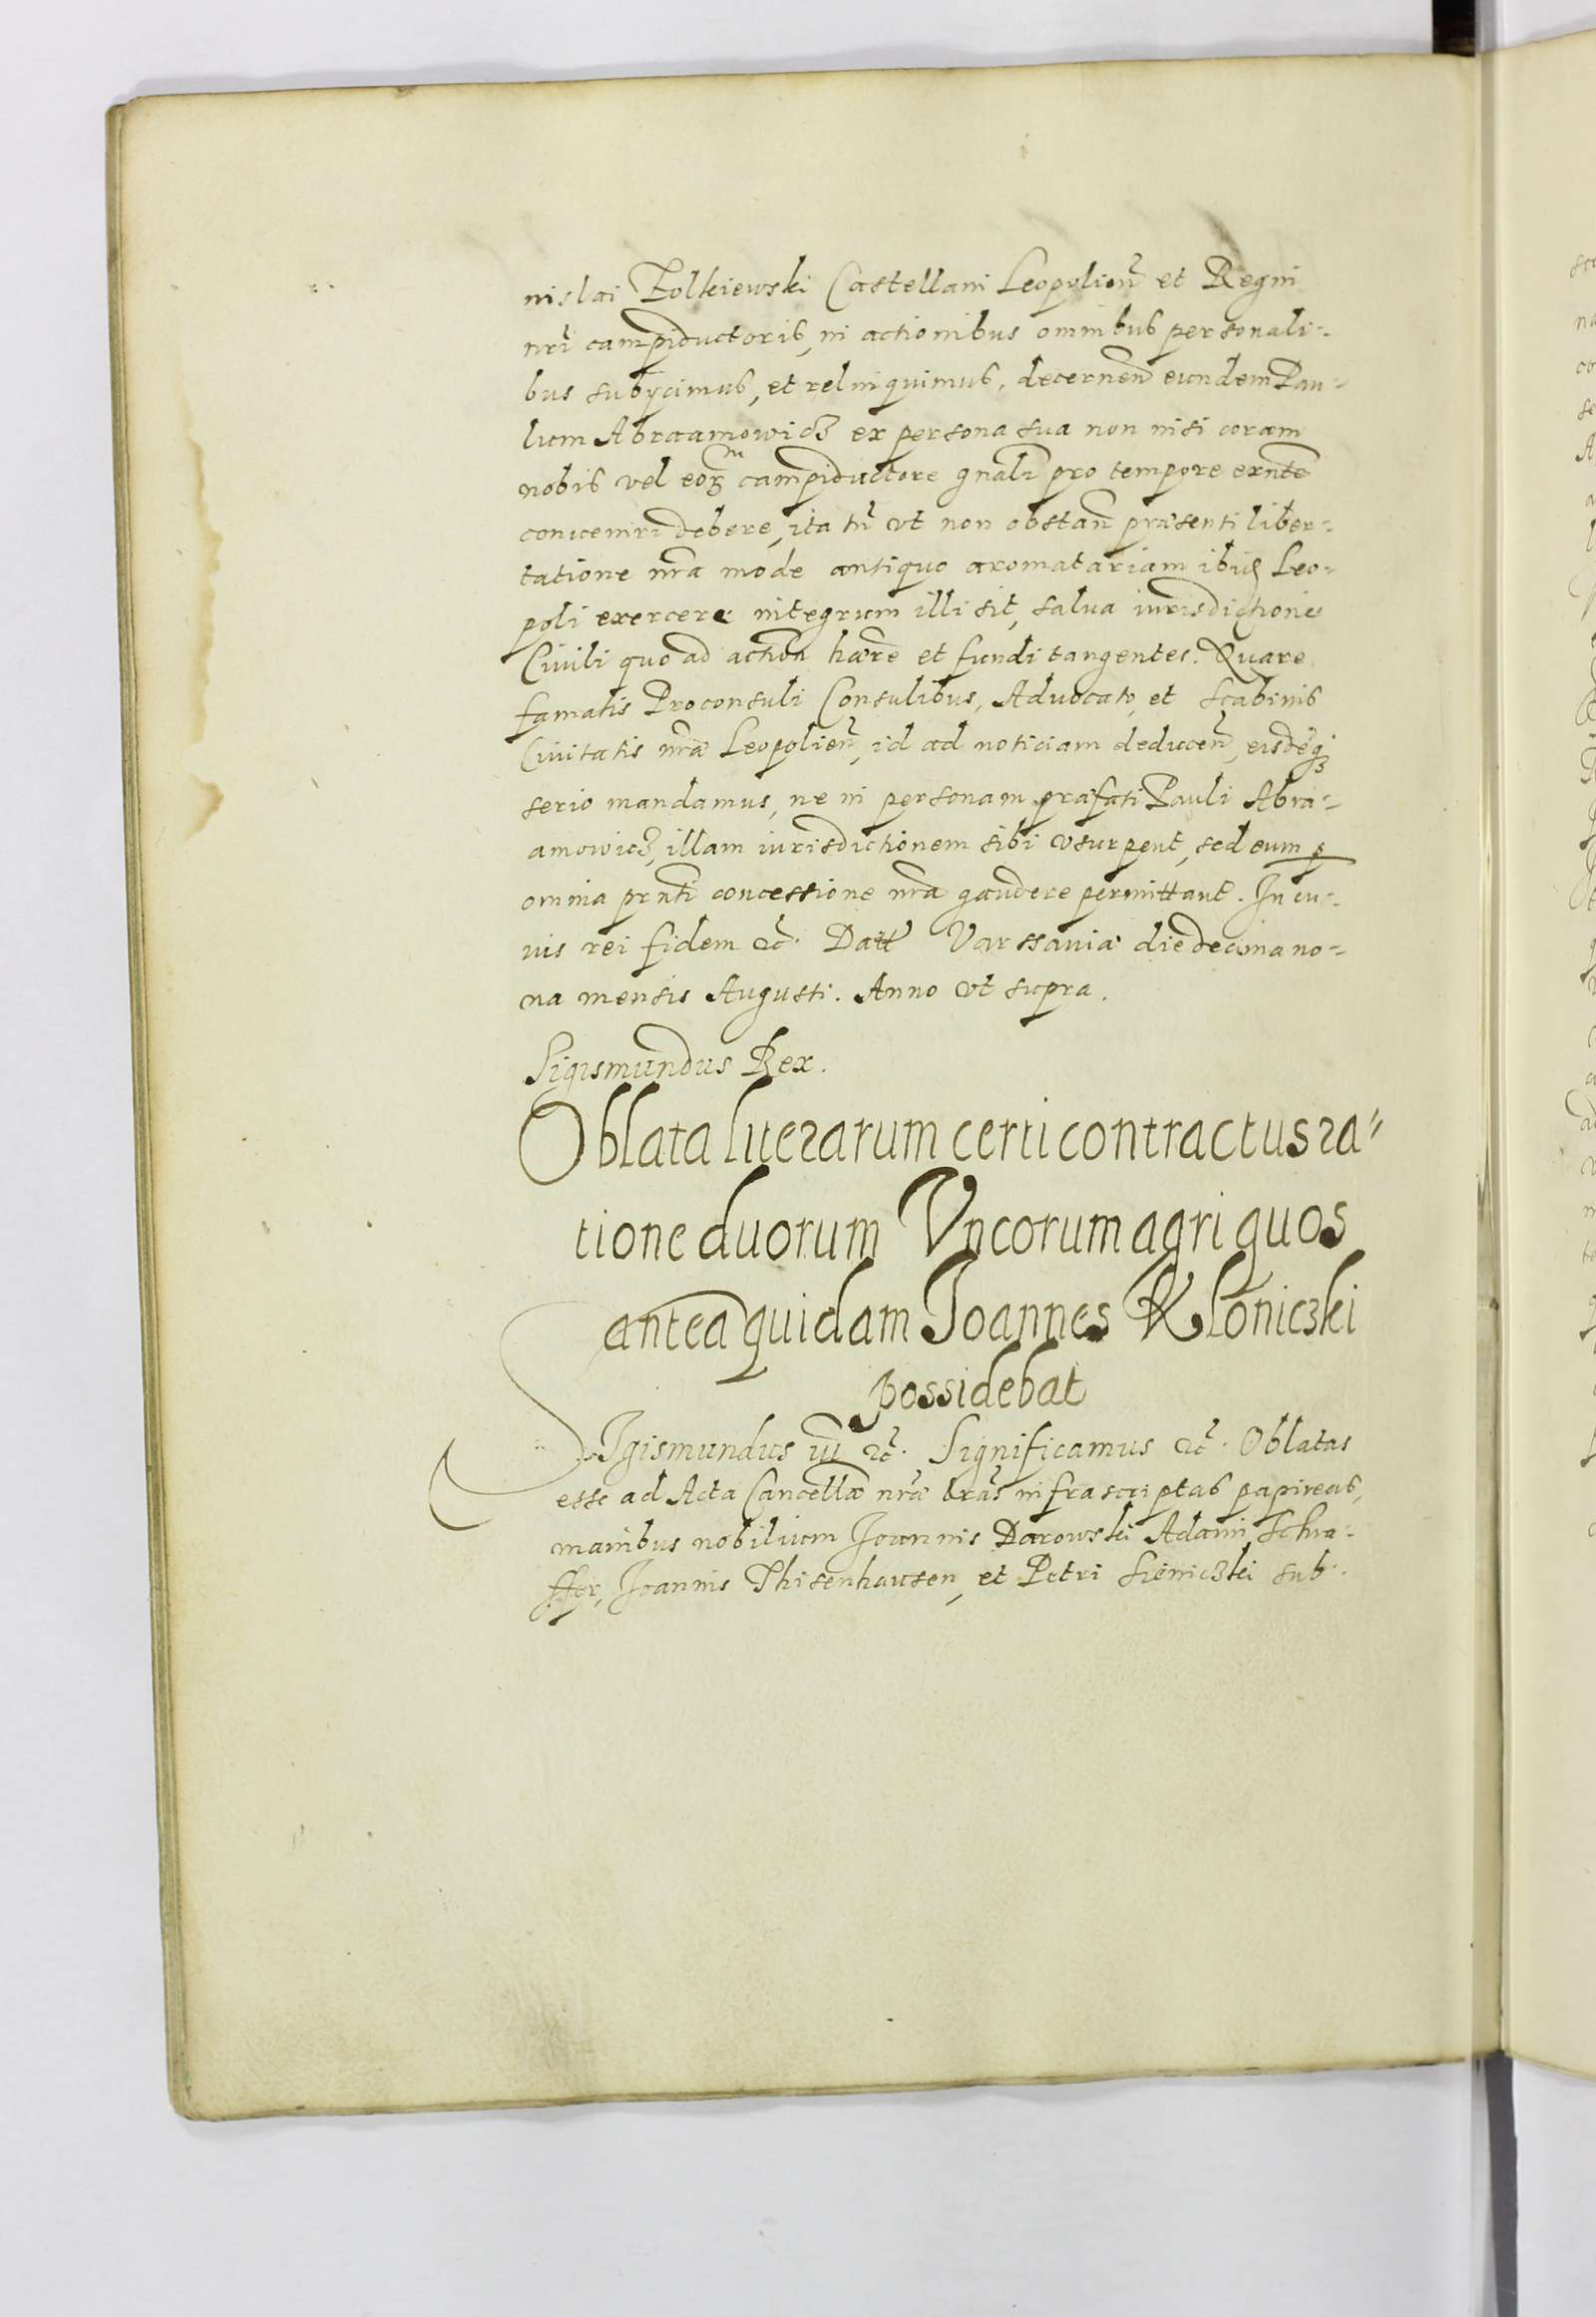 nislai Zolkiewski Castellani Leopolien̄ et Regni
nr̄i campiductoris, in actionibus omnibus personali-
bus subijcimus, et relinquimus, decernen̄ eundem Pau-
lum Abraamowicz ex persona sua non nisi coram
nobis vel eor campiductore gn̄ali pro tempore exn̄te
conveniri debere, ita tn̄ vt non obstan̄ præsenti liber-
tatione nr̄a mode antiquo aromatariam ibid Leo-
poli exercere integrum illi sit, salua iurisdictione
Ciuili quo ad action̄ hær̄e et fundi tangentes. Quare
famatis Proconsuli Consulibus, Aduocato, et Scabinis
Ciuitatis nr̄æ Leopolien̄, id ad noticiam deducen̄, eisdēq₃
serio mandamus, ne in personam præfati Pauli Abra-
amowicz, illam iurisdictionem sibi vsurpent, sed eum ꝑ
omnia prn̄ti concessione nr̄a gaudere permittant. In cu-
ius rei fidem &c̄. Datt Varssauiæ die decima no-
na mensis Augusti. Anno vt supra.
Sigismundus Rex.
Oblata literarum certi contractus ra-
tione duorum Vncorum agri quos
antea quidam Joannes Kloniczki
possidebat
SIgismundus iii &c̄. Significamus &c̄. Oblatas
esse ad Acta Cancellæ nr̄æ lr̄as infrascriptas papireas,
manibus nobilium Joannis Darowski Adami Schra-
ffer, Joannis Thisenhausen, et Petri Sieniczki sub-